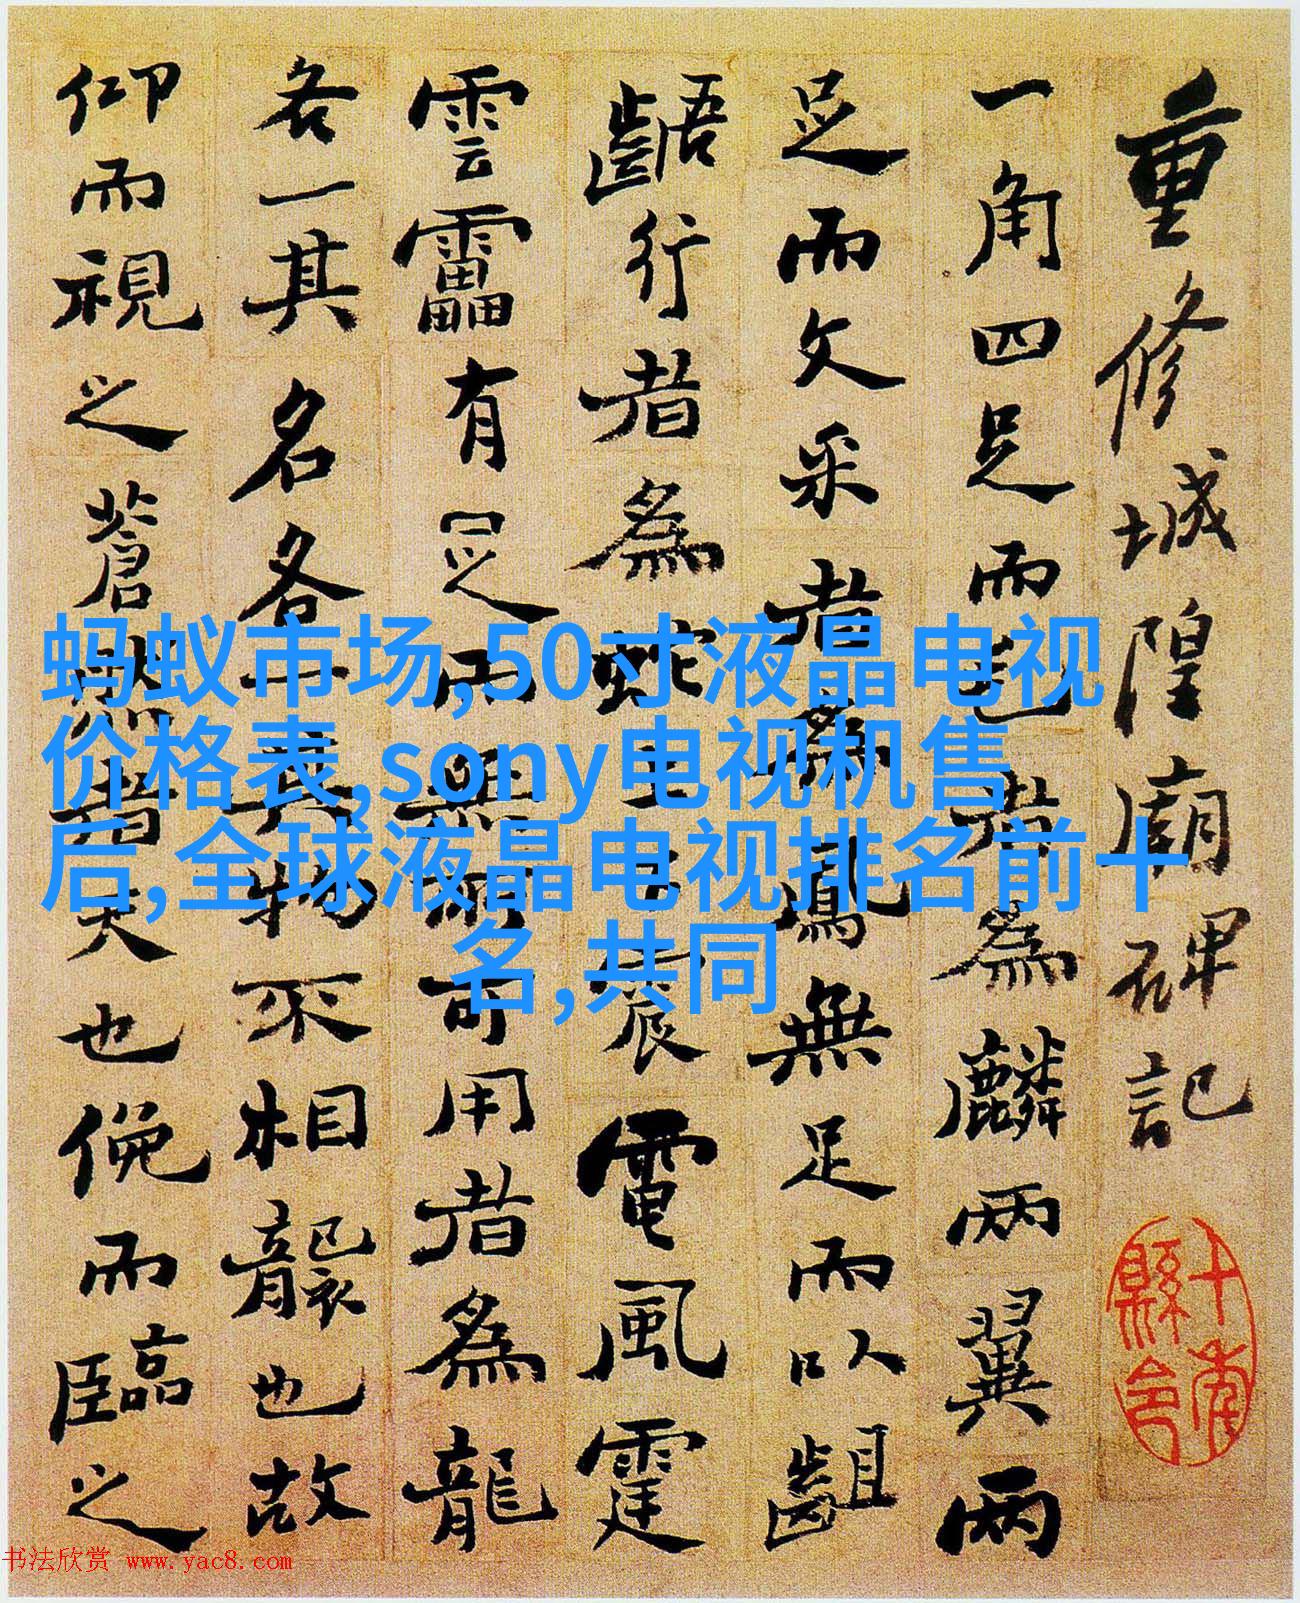 重修城隍廟碑記
一角四足而毛者為麟兩翼兩
足而文采者為鳳無足而以齟
齬行者為蛇上下震電風霆
雲靁有足而無所可用者為龍
各一其名各一其物不相襲也故
仰而視之蒼然者天也俛而臨之
蚂蚁市场,50寸液晶电视
价格表,sony电视机售
后,全球液晶电视排名前十
名,共同
书法欣赏 www.yac8.com